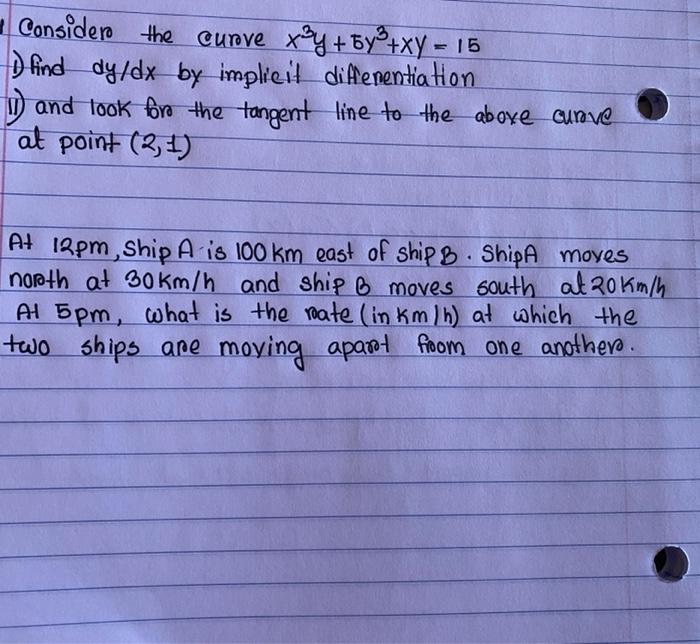 Consider the curve x³y + 5y³ + xy = 15
i) find dy/dx by implicit differentiation
ii) and look for the tangent line to the above curve
at point (2,1)
At 12pm, Ship A is 100 km east of ship B. Ship A moves
north at 30 km/h and ship B moves south at 20 Km/h
At 5pm, what is the rate (in km/h) at which the
two ships are moving apart from one another.